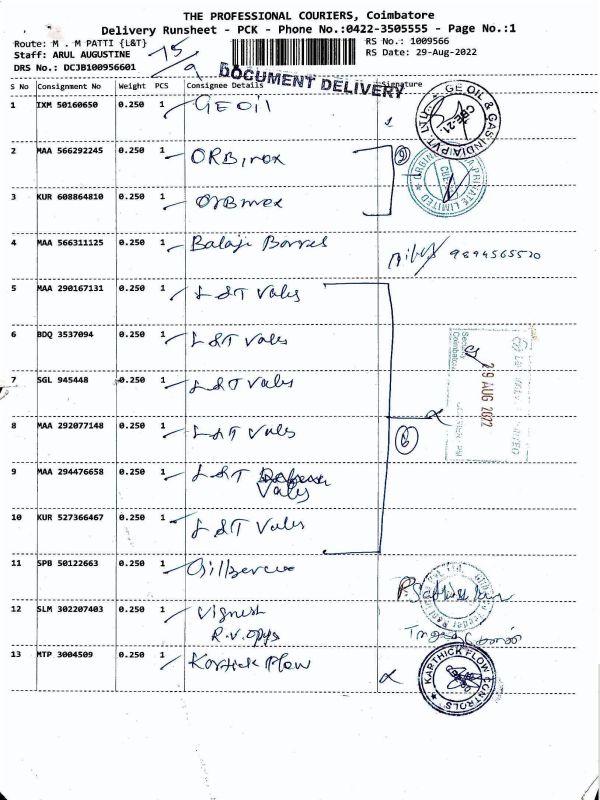 THE PROFESSIONAL COURIERS, Coimbatore
Delivery Runsheet - PCK - Phone No.:0422-3505555 - Page No.:1
Route: M . M PATTI {L&T}
RS No.: 1009566
Staff: ARUL AUGUSTINE
RS Date: 29-Aug-2022
DRS No.: DCJB100956601
15/9
DOCUMENT DELIVERY
S No Consignment No Weight PCS Consignee Details Signature
1 IXM 50160650 0.250 1 GEOil
GE OIL & GAS INDIA PVT. LTD.
2 MAA 566292245 0.250 1 ORBinox
PRIVATE LIMITED
3 KUR 608864810 0.250 1 ORBinox
4 MAA 566311125 0.250 1 Balaji Barrel 9894565520
5 MAA 290167131 0.250 1 L&T Vales
6 BDQ 3537094 0.250 1 L&T Vales
7 SGL 945448 0.250 1 L&T Vales
29 AUG 2022
Security
Coimbatore
8 MAA 292077148 0.250 1 L&T Vales
6
9 MAA 294476658 0.250 1 L&T
Vales
10 KUR 527366467 0.250 1 L&T Vales
11 SPB 50122663 0.250 1
12 SLM 302207403 0.250 1 Vignesh
13 MTP 3004509 0.250 1 Kartick Flow
KARTHICK FLOW CONTROLS